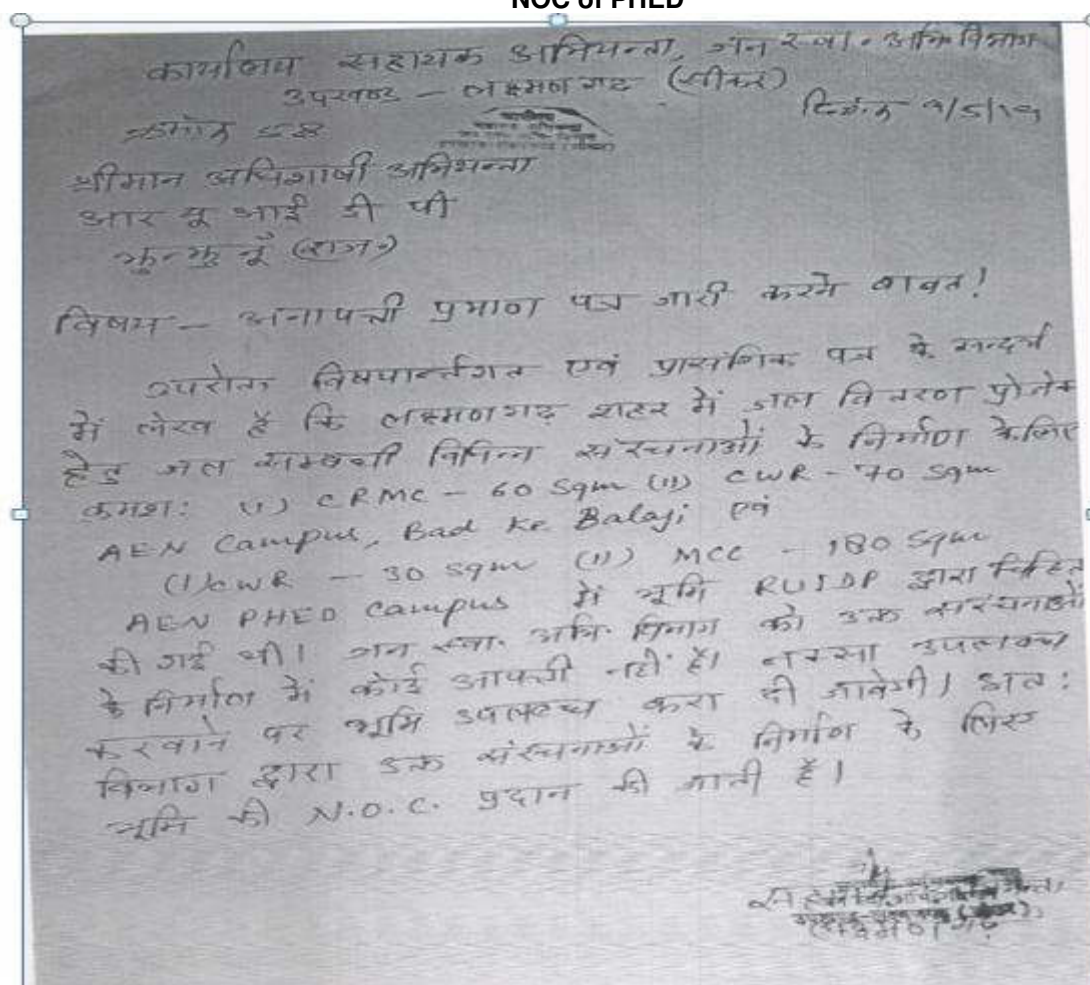 NOC of PHED
कार्यालय सहायक अभियन्ता, जन स्वा. अभि. विभाग
उपखण्ड – लक्ष्मणगढ (सीकर)
क्रमांक दिनांक
श्रीमान अधिशाषी अभियन्ता
आर यू आई डी पी
झुन्झुनूँ (राज॰)
विषय – अनापत्ती प्रमाण पत्र जारी करने बाबत!
उपरोक्त विषयान्तर्गत एवं प्रासंगिक पत्र के सन्दर्भ
में लेख है कि लक्ष्मणगढ़ शहर में जल वितरण प्रोजेक्ट
हेतु जल सम्बन्धी विभिन्न संरचनाओं के निर्माण के लिए
क्रमश: (i) CRMC – 60 sqm (ii) CWR – 70 sqm
AEN Campus, Bad Ke Balaji एवं
(i) CWR – 30 sqm (ii) MCC – 180 sqm
AEN PHED Campus में भूमि RUIDP द्वारा चिन्हित
की गई थी। जन स्वा. अभि. विभाग को उक्त संरचनाओं
के निर्माण में कोई आपत्ती नहीं है। नक्सा उपलब्ध
करवाने पर भूमि उपलब्ध करा दी जावेगी। अत:
विभाग द्वारा उक्त संरचनाओं के निर्माण के लिए
भूमि की N.O.C. प्रदान की जाती है।